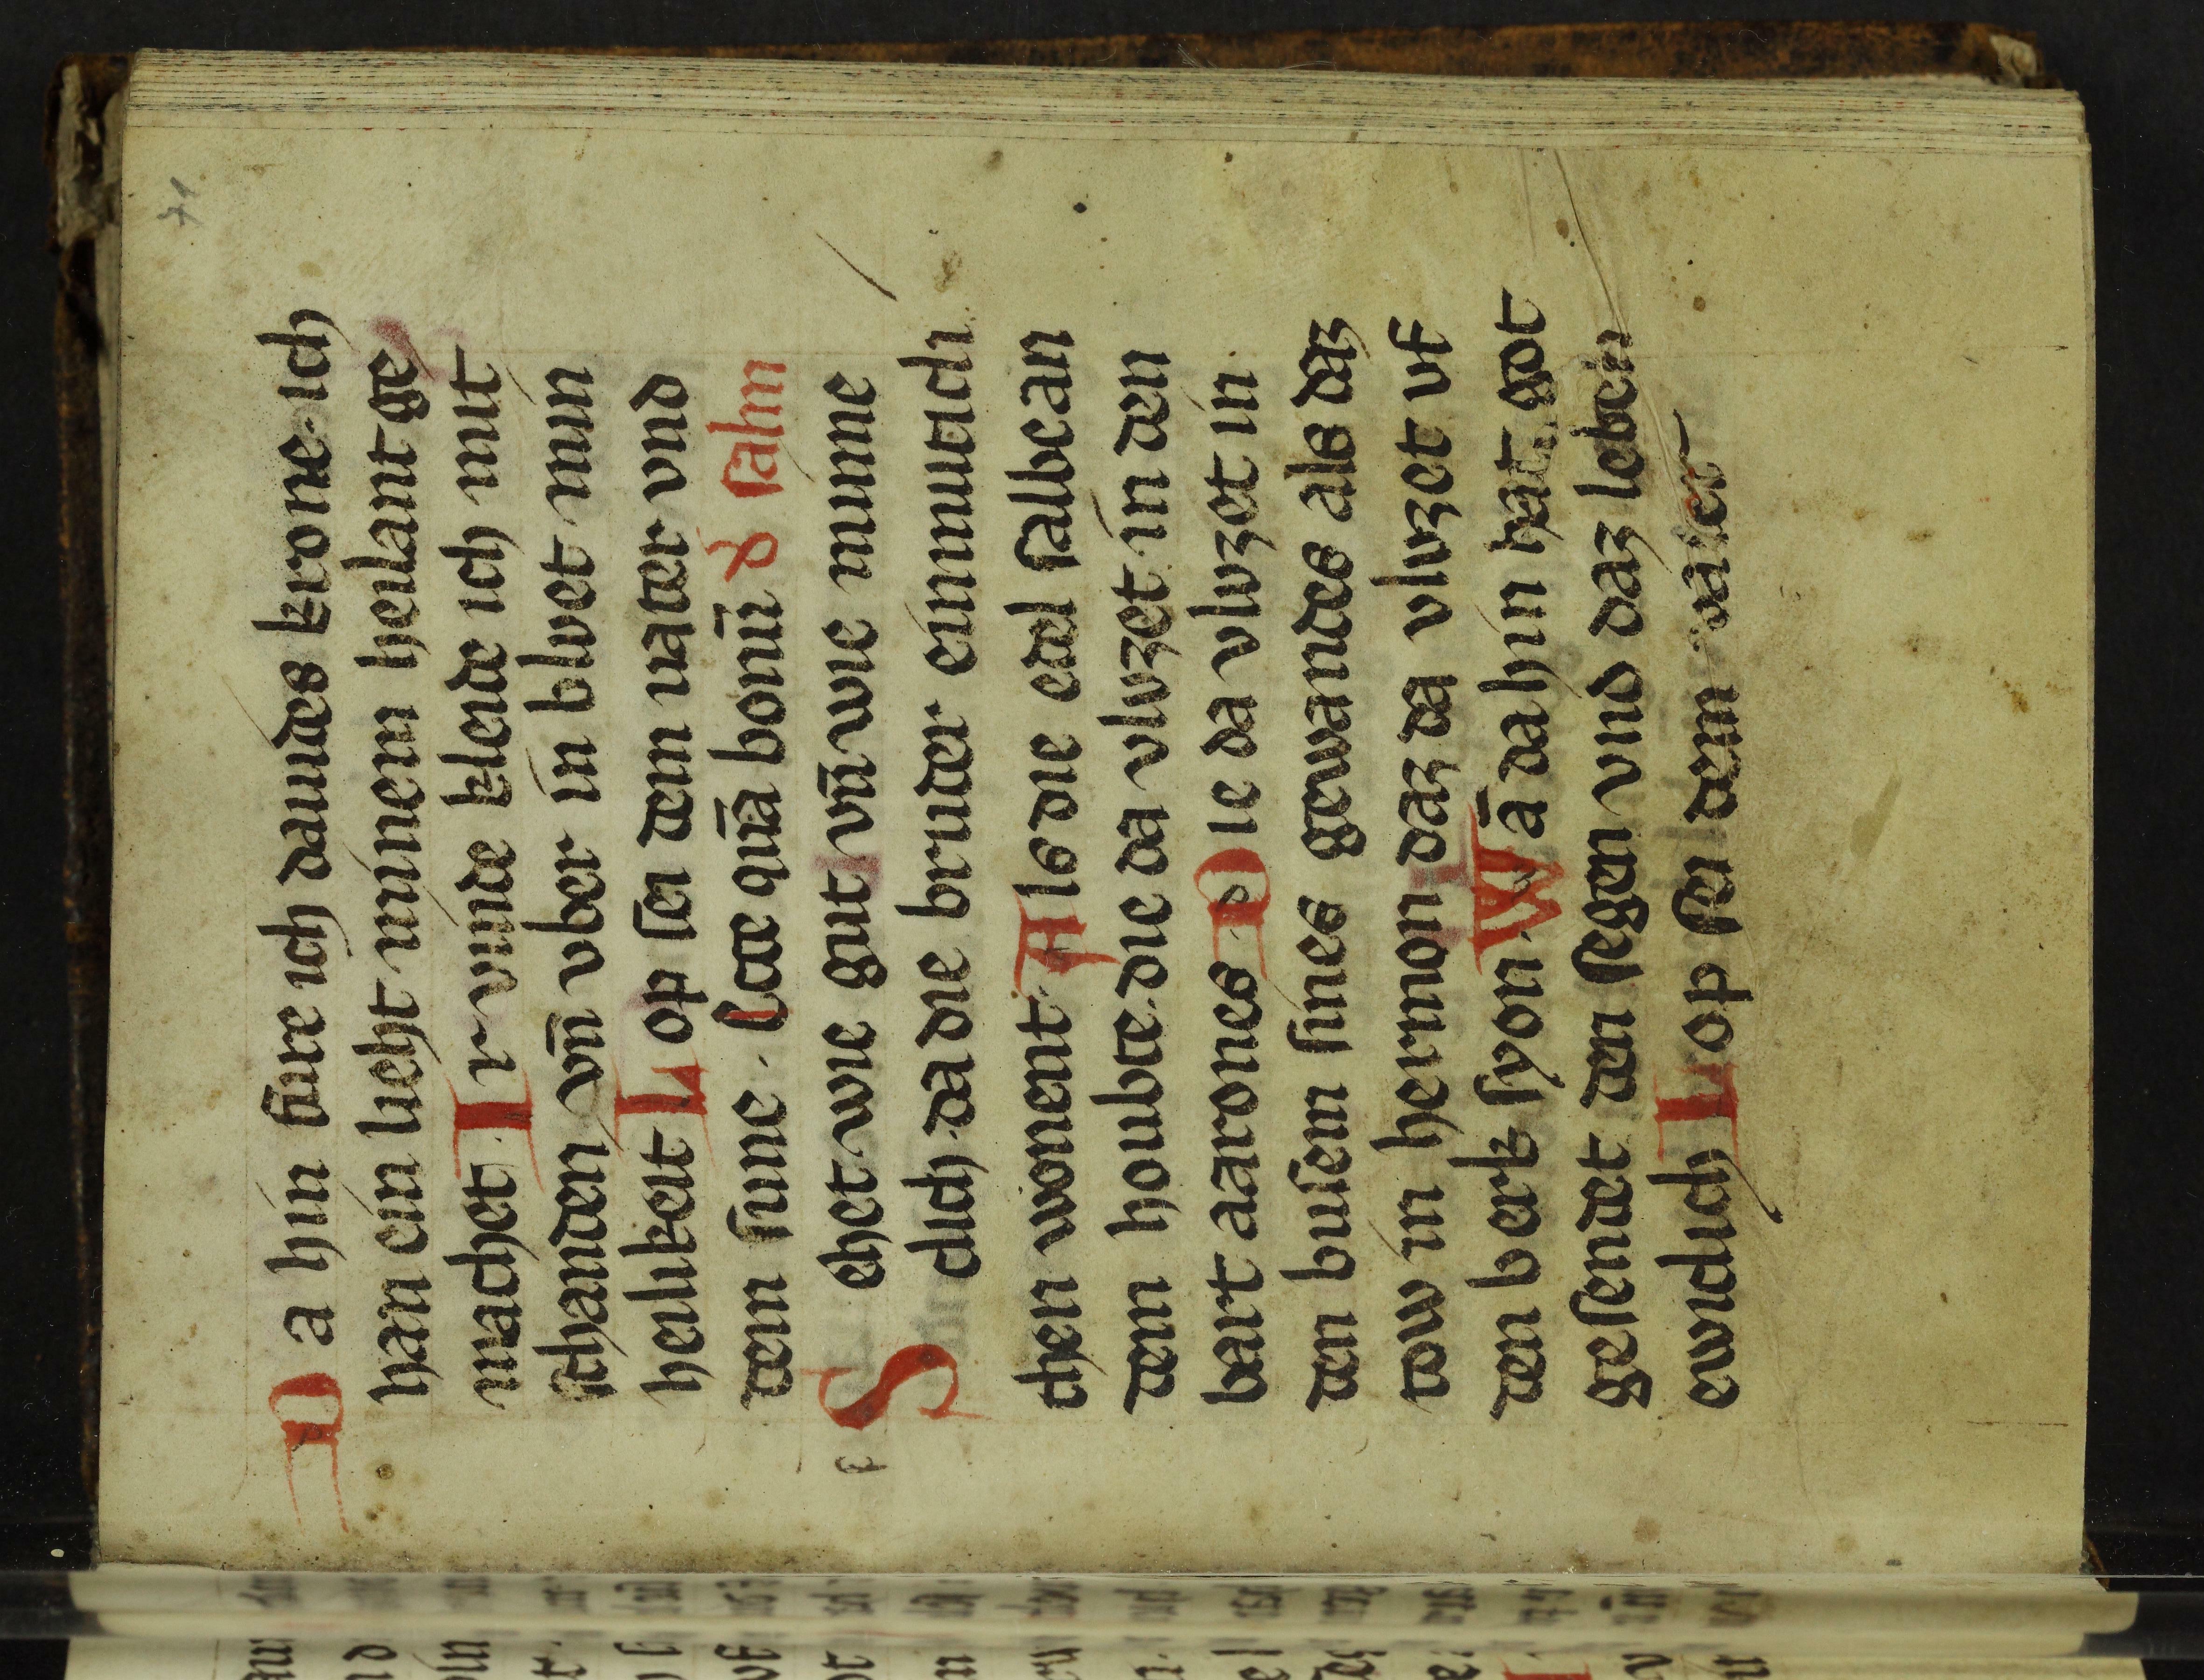 71
Da hin fűre ich dauides krone. ich
han ein lieht minem heilant ge
machet. Ir vinde kleide ich mit
schanden vñ vber in blvet min
heilikeit Lop sei dem uater vnd
dem sune. Ecce quā bonū d salm
Sehet. wie gut vñ wie minne
clich. da die bruder einmutcli
chen wonent. Als die edel salbe an
dem houbte. die da vlvzet in den
bart aarones. Die da vlvzet in
den busem sines gewandes als daz
tow in hermon daz da vlvzet vf
den berk syon. Wā da hin hat got
gesendet den segen vnd daz leben
ewiclich Lop sei dem vater